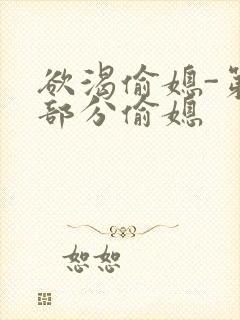 欲渴偷媳-第
部分偷媳
恕恕